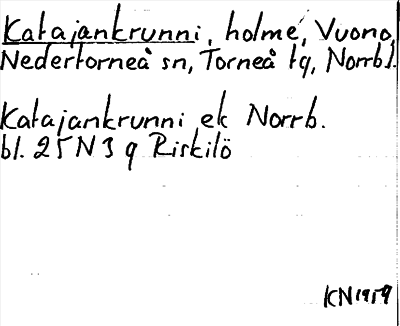 Katajankrunni, holme, Vuono,
Nedertorneå sn, Torneå tg, Norrb.l.
Katajankrunni ek Norrb.
bl. 25 N 3 q Riskilö
KN 1959